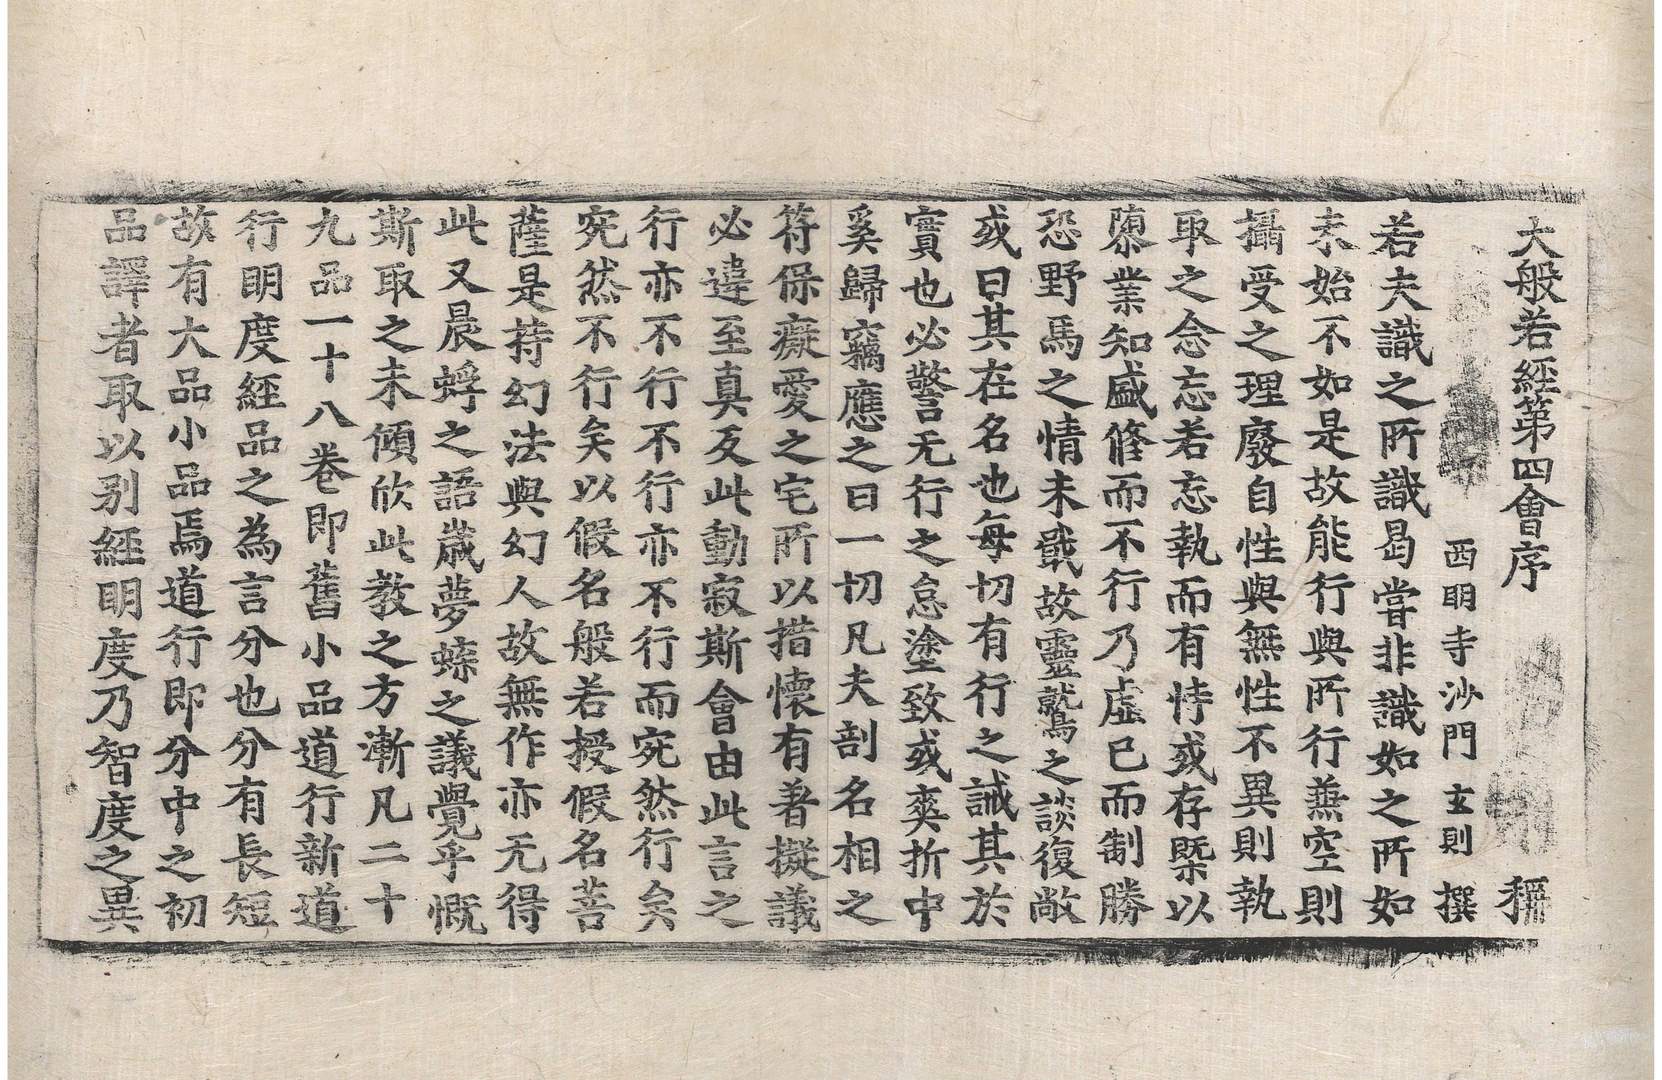 大般若經第四會序 稱
西明寺沙門 玄則 撰
若夫識之所識曷嘗非識如之所如
未始不如是故能行與所行兼空則
攝受之理廢自性與無性不異則執
取之念忘若忘執而有恃或存旣以
隳業知盛修而不行乃虛已而制勝
恐野馬之情未戢故靈鷲之談復敞
或曰其在名也每切有行之誡其於
實也必警无行之怠塗致或爽折中
奚歸竊應之曰一切凡夫剖名相之
符保癡愛之宅所以措懷有著擬議
必違至真及此動寂斯會由此言之
行亦不行不行亦不行而宛然行矣
宛然不行矣以假名般若授假名菩
薩是持幻法與幻人故無作亦无得
此又晨蜉之語歲夢蝶之議覺乎慨
斯取之未傾欣此教之方漸凡二十
九品一十八卷即舊小品道行新道
行明度經品之為言分也分有長短
故有大品小品焉道行即分中之初
品譯者取以別經明度乃智度之異